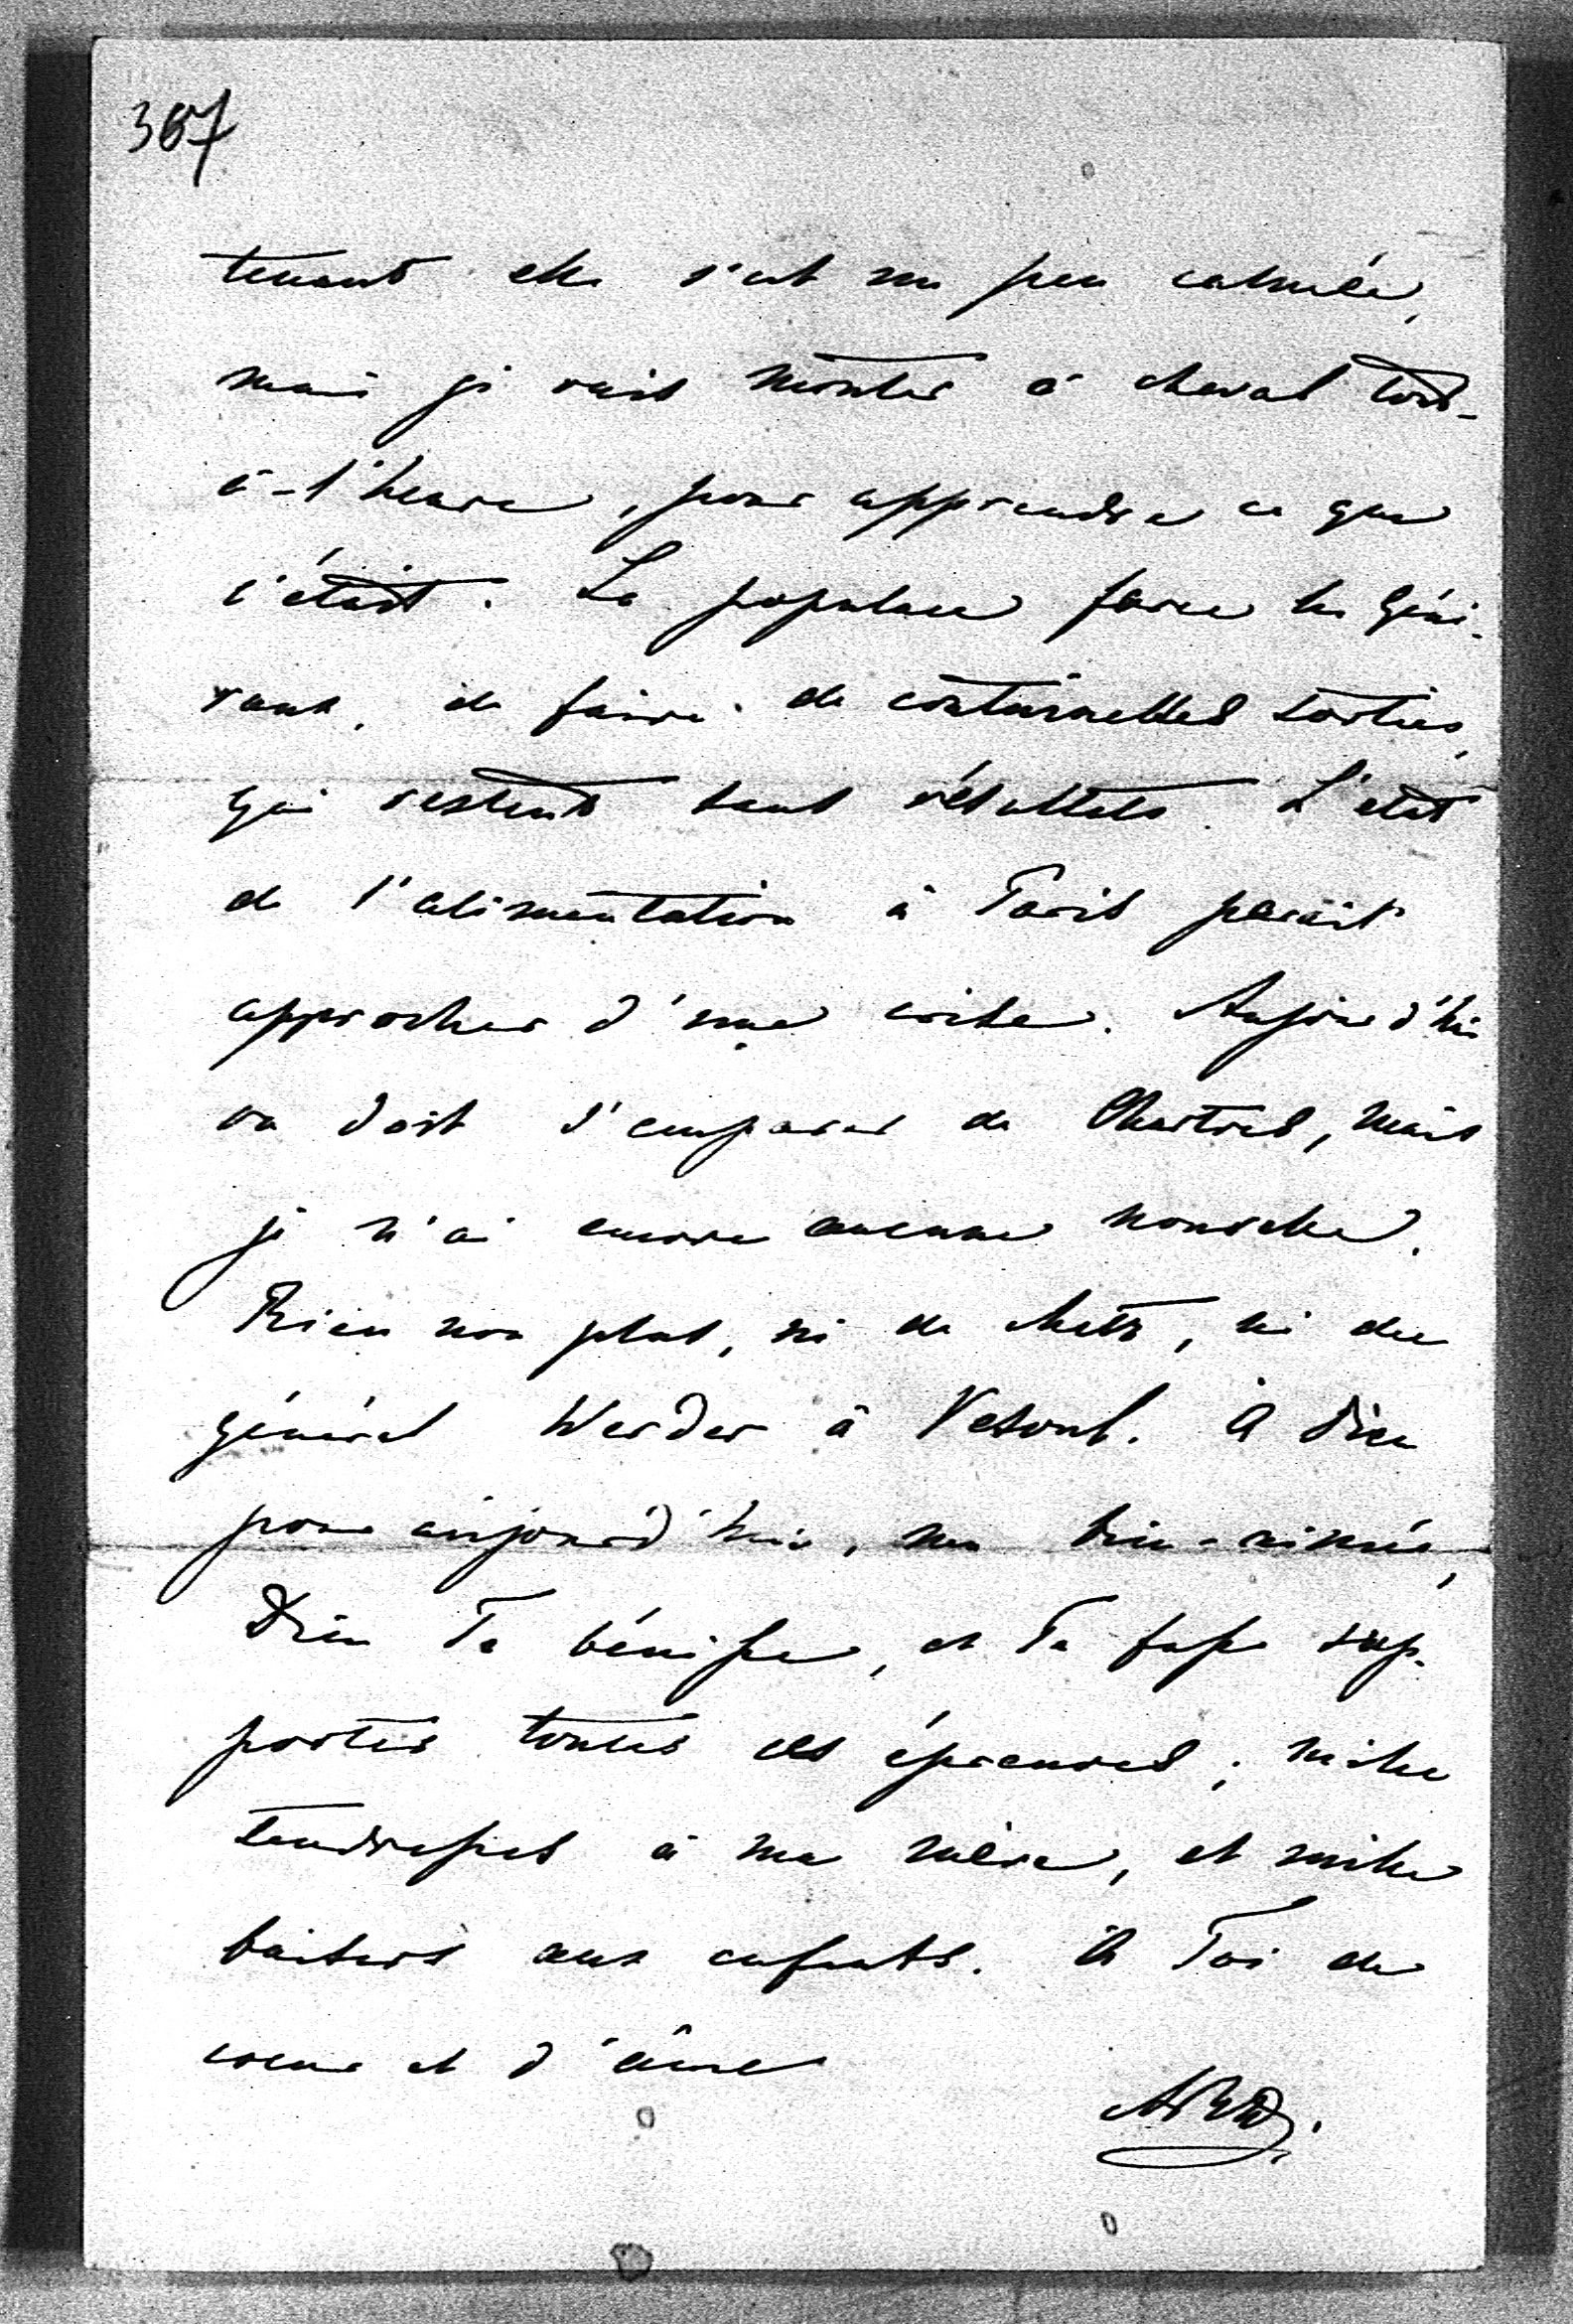 367
tenant elle s'est un peu calmée,
mais je vais monter à cheval tout-
à-l'heure, pour apprendre ce que
c'était. La populace force les Géné-
raux, de faire de continuelles sorties,
qui restent sans résultats. L'état
de l'alimentation à Paris parait
approcher d'une crise. Aujourd'hui
on doit s'emparer de Chartres, mais
je n'ai encore aucune nouvelle.
Rien non plus, ni de Metz, ni du
général Werder à Vesoul. À Dieu
pour aujourd'hui, ma bien-aimée,
Dieu Te bénisse, et Te fasse sup-
porter toutes ces épreuves; mille
tendresses à ma mère, et mille
baisers aux enfants. À Toi de
coeur et d'âme